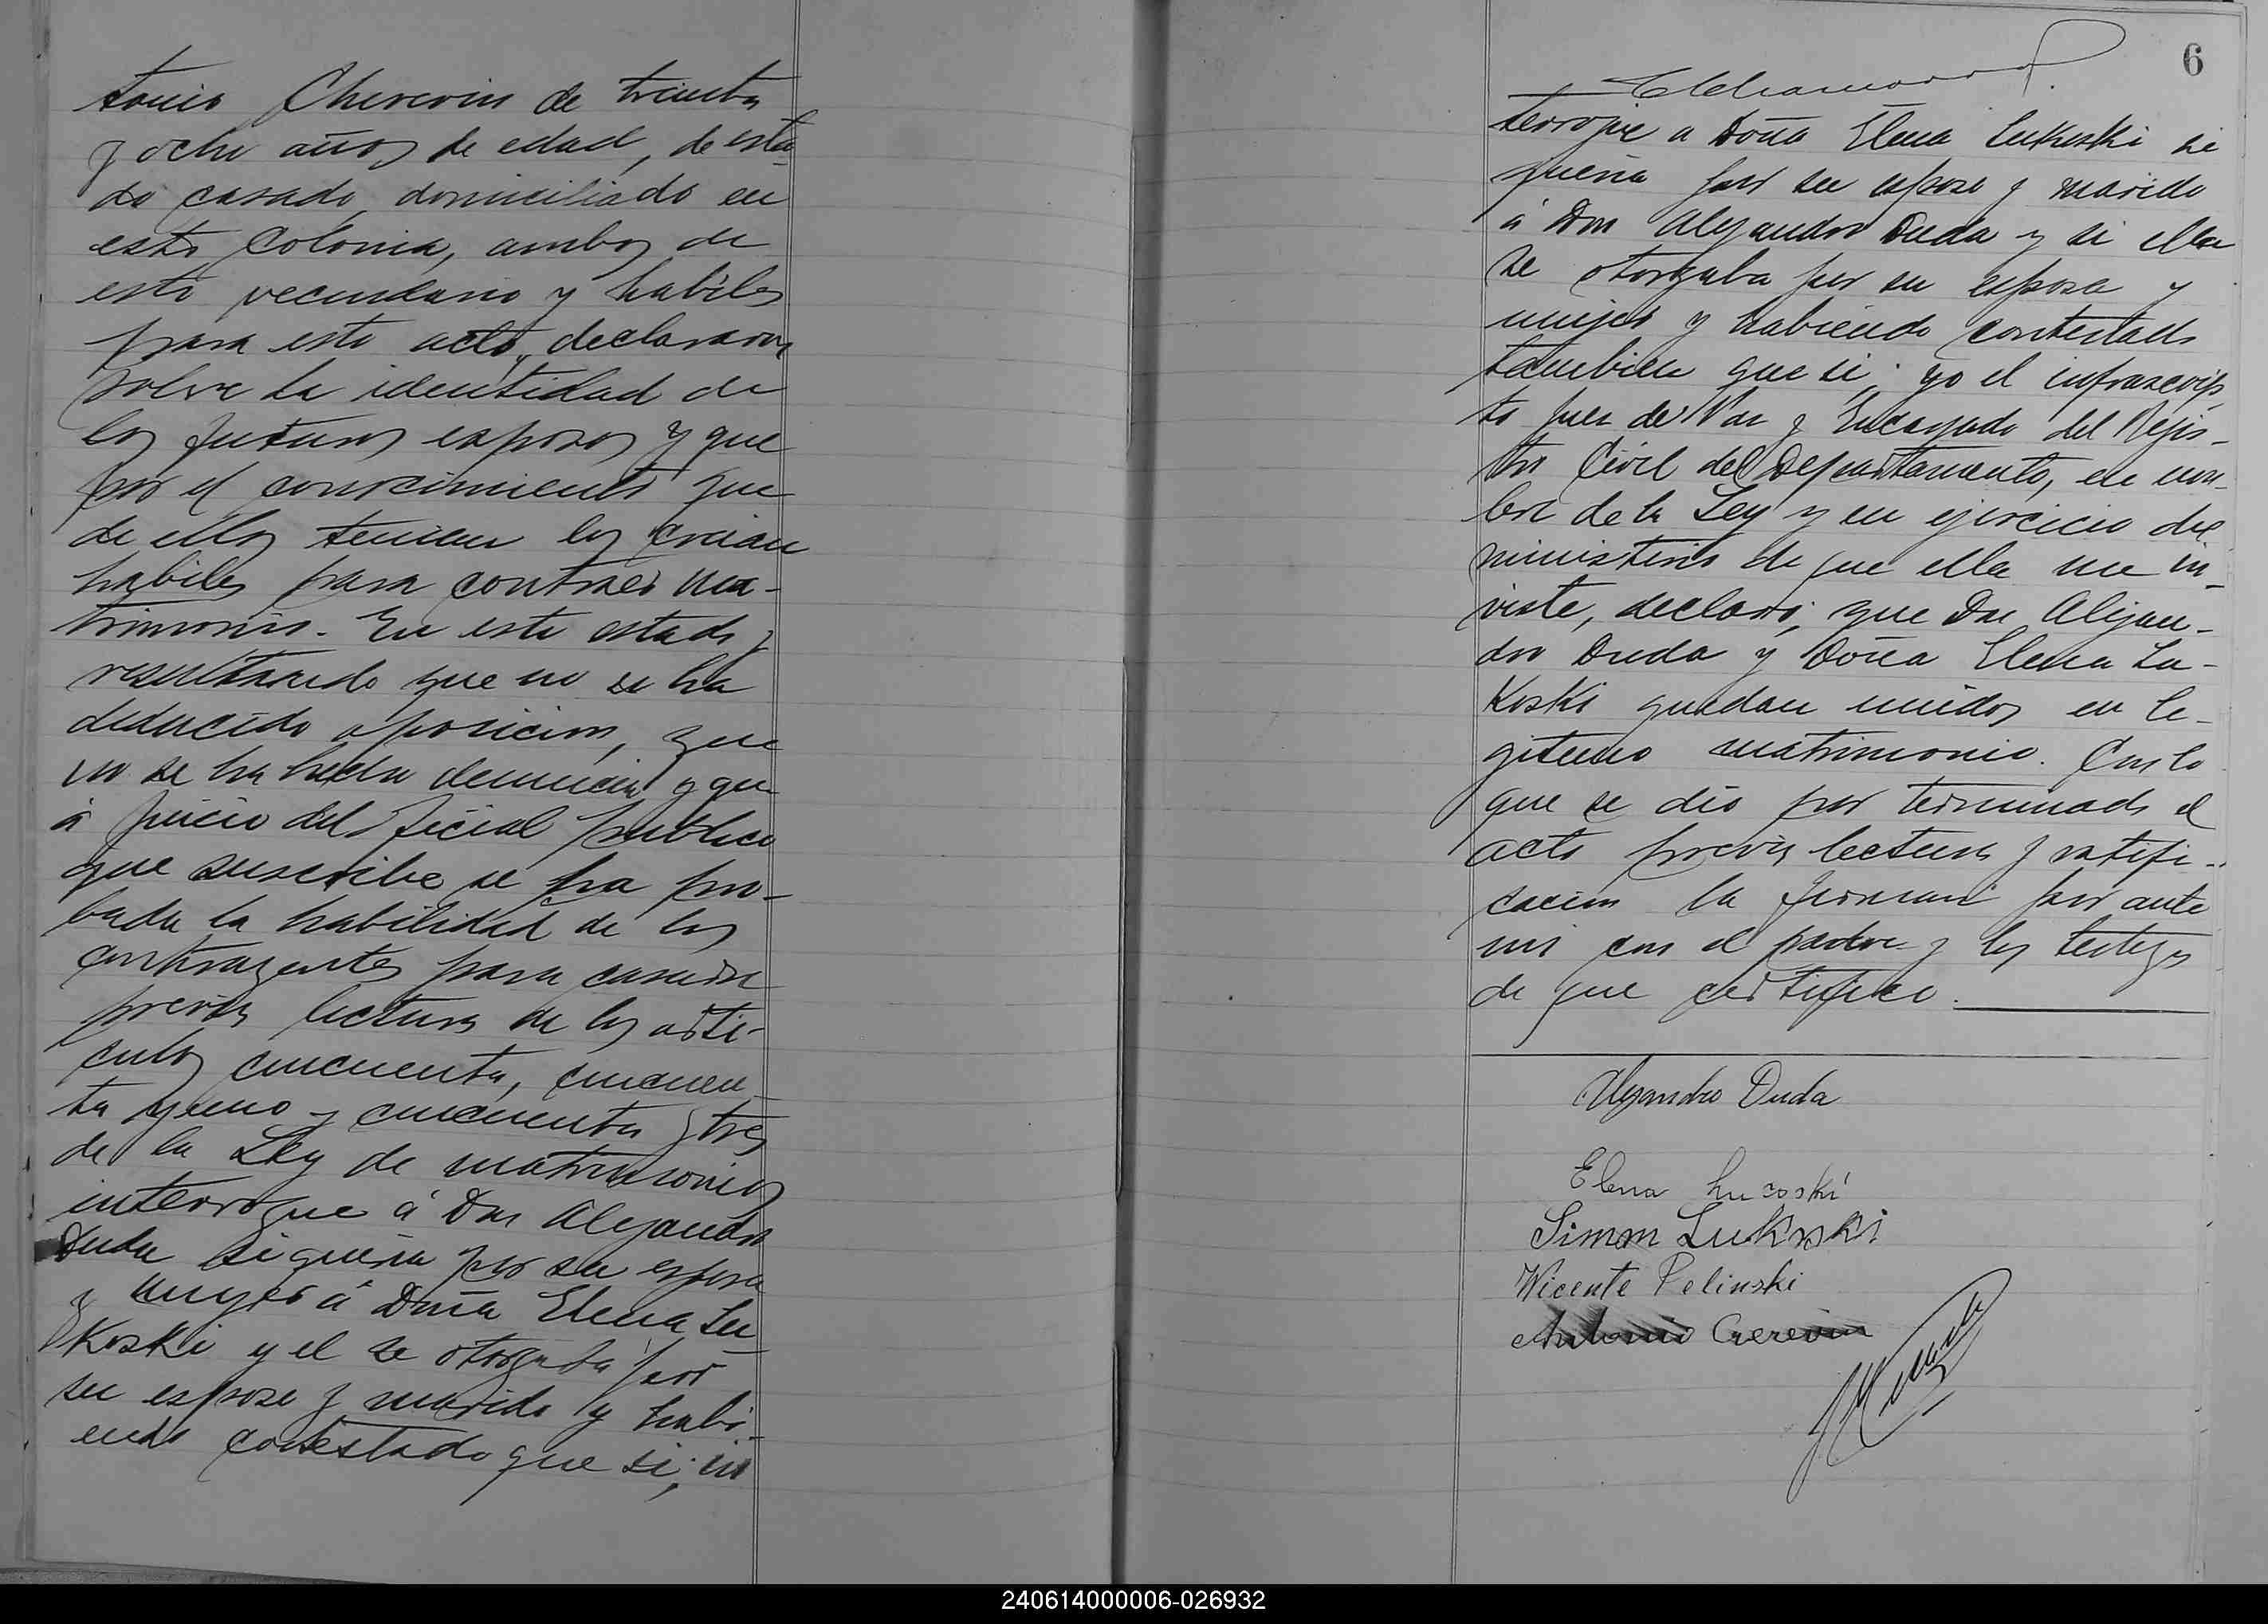 tonio Chererin de treinta
y ocho años de edad, de esta-
do casado, domiciliado en
esta Colonia, ambos de
este vecindario y habiles
para este acto, declararon
sobre la identidad de
los futuros esposos y que
por el conocimiento que
de ellos tenian los creian
habiles para contraer ma-
trimonio. En este estado y
resultando que no se ha
deducido oposicion, que
no se ha hecho denuncia y que
á juicio del oficial publico
que suscribe se ha pro-
bado la habilidad de los
contrayentes para casarse
previa lectura de los arti-
culos cincuenta, cincuen-
ta y uno y cincuenta y tres
de la Ley de matrimonios
interrogue á Don Alejandro
Duda si queria por su esposa
y muger á Doña Elena Lu-
Koski y el se otorgaba por
su esposo y marido y habi-
endo contestado que si; in
6
terrogue a Doña Elena Lukoski si
queria por su esposo y marido
á Don Alejandro Duda y si ella
se otorgaba por su esposa y
mujer y habiendo contestado
tambien que si; yo el infrascrip
to Juez de Paz y Encargado del Rejis-
tro Civil del Departamento, en nom-
bre de la Ley y en ejercicio del
ministerio de que ella me in-
viste, declaro; que Don Alejan-
dro Duda y Doña Elena Lu-
Koski quedan unidos en le-
gitimo matrimonio. Con lo
que se dio por terminado el
acto previa lectura y ratifi-
cacion la firman por ante
mi con el padre y los testigos
de que certifico.
Alejandro Duda
Elena Lucoski
Simon Lukoski
Wicente Pelinski
Antonio Crerevin
240614000006-026932